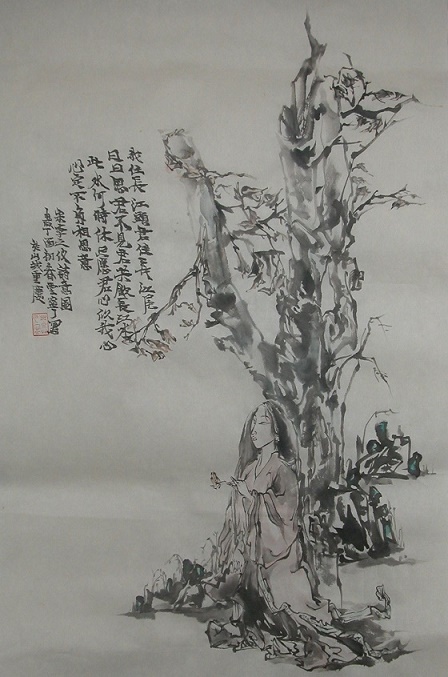 我住長江頭君住長江尾
日日思君不見君共飲長江水
此水何時休愿君心似我心
定不負相思意
宋李之仪詩意圖
丁酉初春